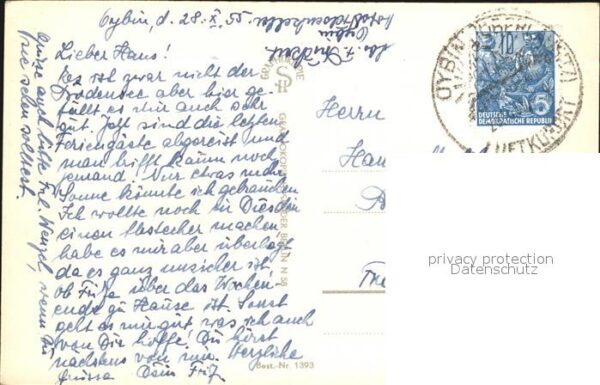 Oybin, d. 28.X.55
Oybin
Lieber Hans!
Es ist zwar nicht der
Bodensee aber hier ge-
fällt es mir auch sehr
gut. Jetzt sind die letzten
Feriengäste abgereist und
man trifft kaum noch
jemand. Nur etwas mehr
Sonne könnte ich gebrauchen
Ich wollte noch in Dresden
einen Abstecher machen,
habe es mir aber überlegt
da es ganz unsicher ist,
ob Fritz über das Wochen-
ende zu Hause ist. Sonst
geht es mir gut, was ich auch
von Dir hoffe. Du hörst
nächstens von mir. Herzliche
Grüsse Dein Fritz
Grüsse auch bitte Frl. Wenzel wenn Du
sie sehen solltest.
Herrn
10 5
DEUTSCHE
DEMOKRATISCHE REPUBLIK
OYBIN
LUFTKURORT
BERLIN N 58
Best.-Nr. 1393
privacy protection
Datenschutz